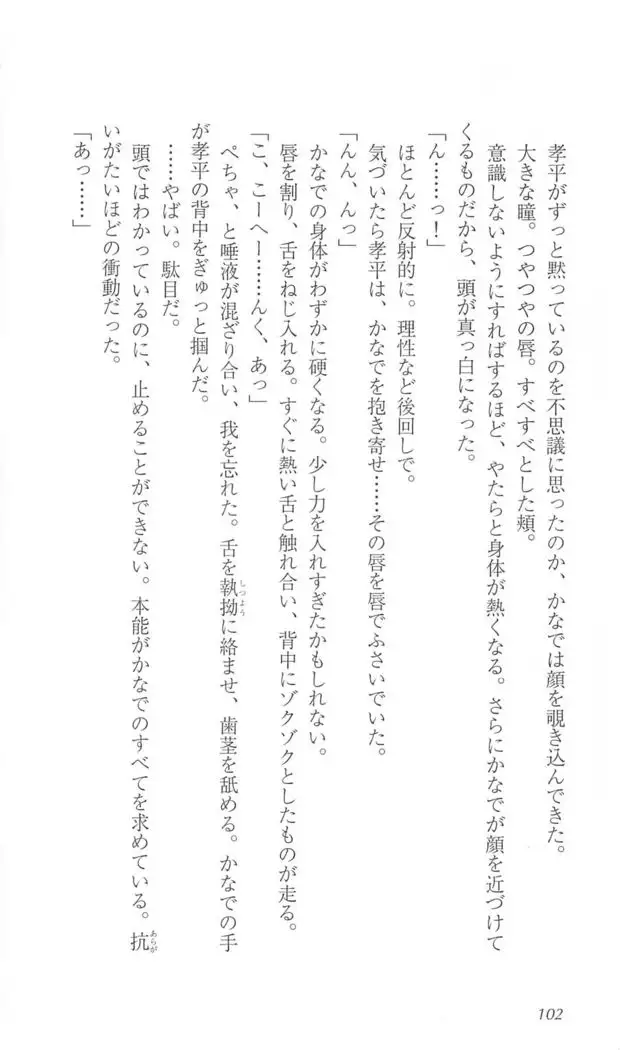 孝平がずっと黙っているのを不思議に思ったのか、かなでは顔を覗き込んできた。
大きな瞳。つやつやの唇。すべすべとした頬。
意識しないようにすればするほど、やたらと身体が熱くなる。さらにかなでが顔を近づけて
くるものだから、頭が真っ白になった。
「ん……っ！」
ほとんど反射的に。理性など後回しで。
気づいたら孝平は、かなでを抱き寄せ……その唇を唇でふさいでいた。
「んん、んっ」
かなでの身体がわずかに硬くなる。少し力を入れすぎたかもしれない。
唇を割り、舌をねじ入れる。すぐに熱い舌と触れ合い、背中にゾクゾクとしたものが走る。
「こ、こーへー……んく、あっ」
ぺちゃ、と唾液が混ざり合い、我を忘れた。舌を執拗に絡ませ、歯茎を舐める。かなでの手
しつよう
が孝平の背中をぎゅっと掴んだ。
……やばい。駄目だ。
頭ではわかっているのに、止めることができない。本能がかなでのすべてを求めている。抗
あらが
いがたいほどの衝動だった。
「あっ……」
102